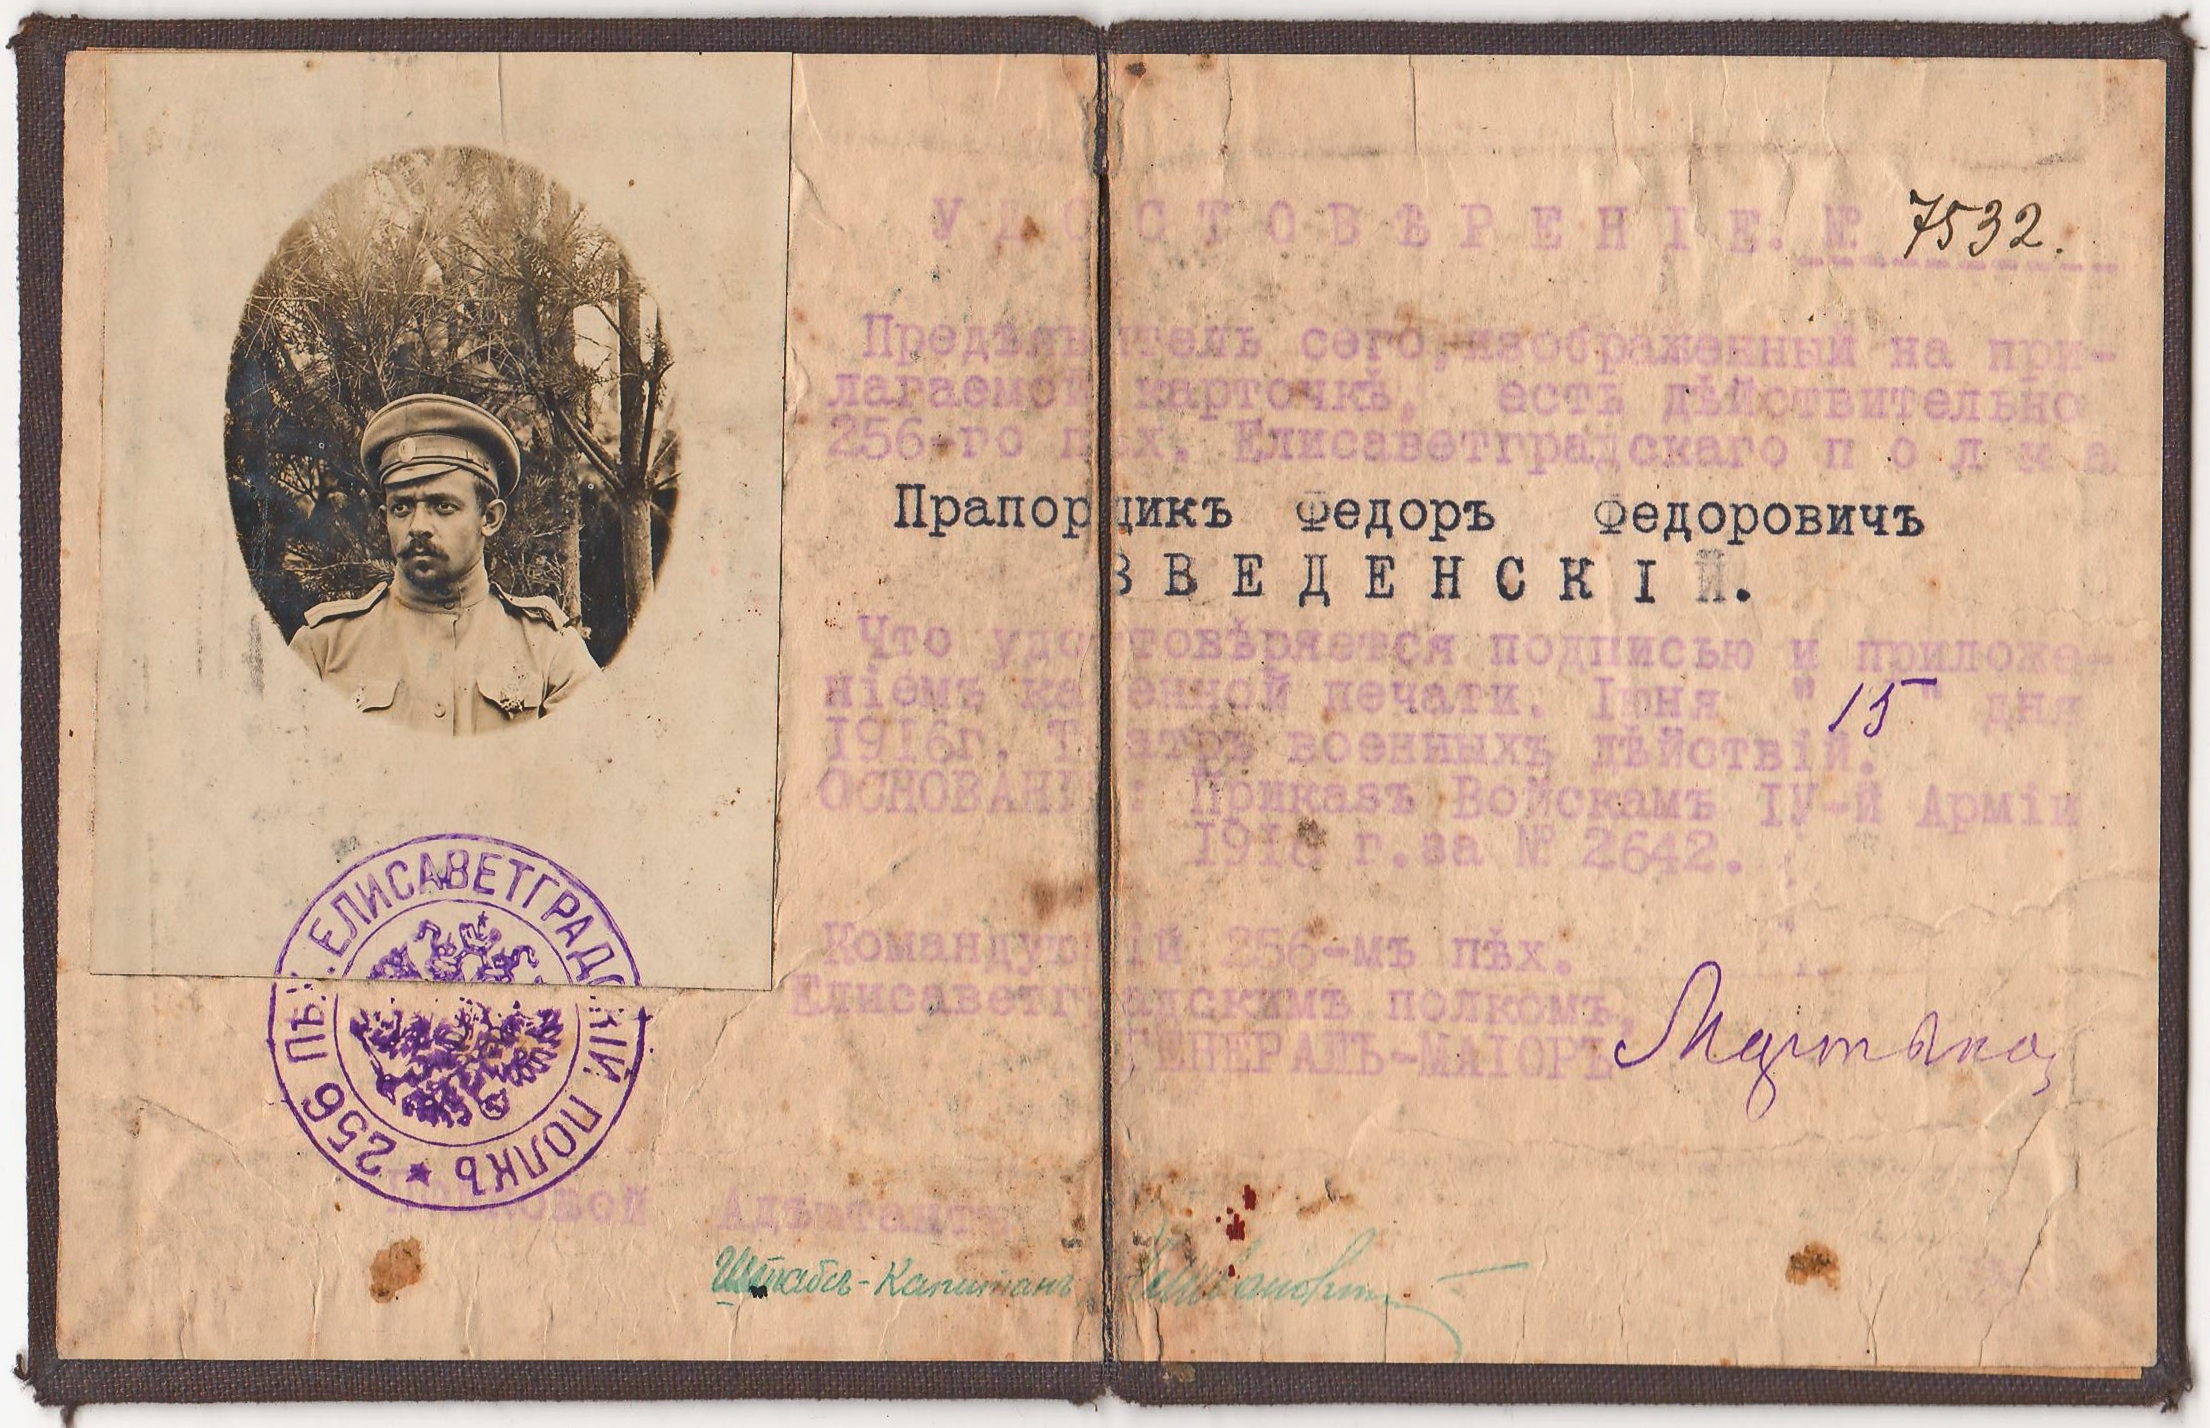 УДОСТОВѢРЕНІЕ. № 7532.
Предъявитель сего, изображенный на при-
лагаемой карточкѣ, есть дѣйствительно
256-го пѣх. Елисаветградскаго полка
Прапорщикъ Федоръ Федоровичъ
ВВЕДЕНСКІЙ.
Что удостовѣряется подписью и приложе-
ніемъ казенной печати. Іюня "15" дня
1916г. Театръ военныхъ дѣйствій.
ОСНОВАНІЕ: Приказъ Войскамъ ІУ-й Арміи
1916 г. за № 2642.
Командующій 256-мъ пѣх.
Елисаветградскимъ полкомъ,
ГЕНЕРАЛЪ-МАІОРЪ
256 ПѢХ. ЕЛИСАВЕТГРАДСКІЙ ПОЛКЪ
Полковой Адъютантъ
Штабсъ-Капитанъ